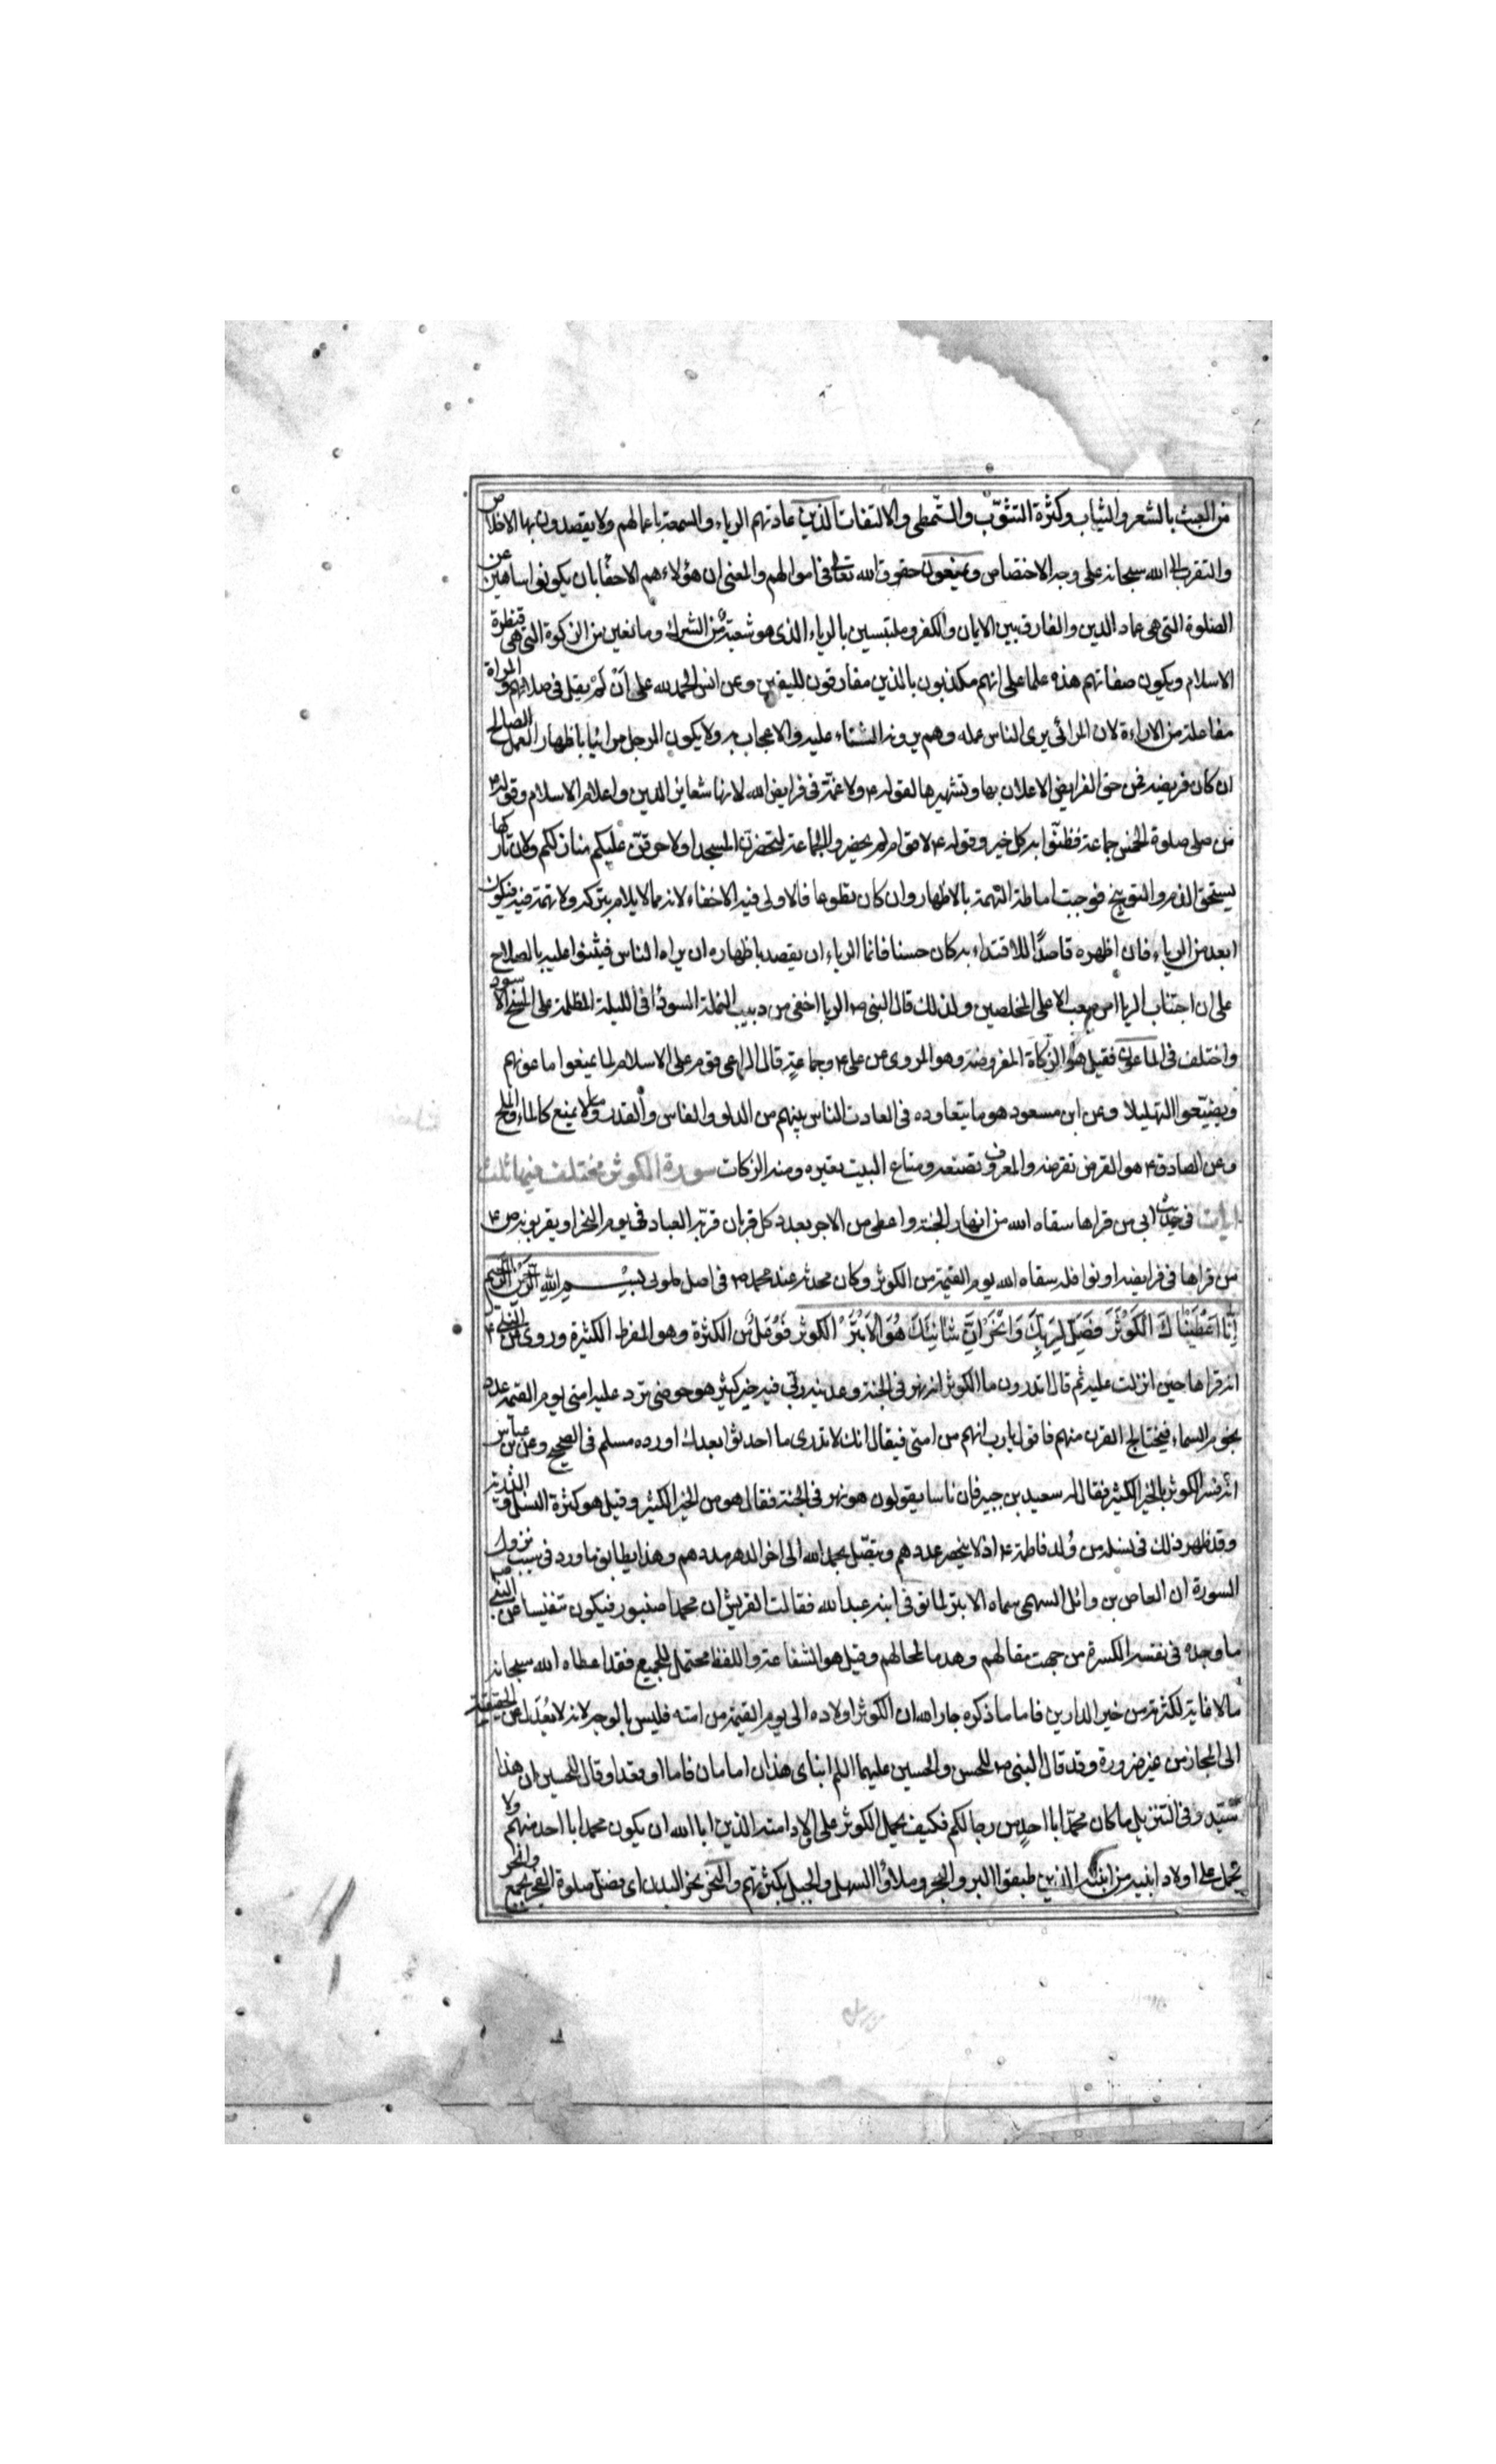 من العبث بالشعر والثياب وكثرة التثوّب والتمطى والالتفات الذين عادتهم الرياء والسمعة باعمالهم ولا يقصدون بها الاخلاص
والتقرب الى الله سبحانه على وجه الاختصاص ويمنعون حقوق الله تعالى فى اموالهم والمعنى ان هؤلاء هم الاحقّا بان يكونوا ساهين عن
الصلوة التى هى عماد الدين والفارق بين الايمان والكفر وملتبسين بالرياء الذى هو شعبة من الشرك ومانعين من الزكوة التى هى قنطرة
الاسلام ويكون صفاتهم هذه علما على انهم مكذبون بالدين مفارقون لليقين وعن انس الحمد لله على اَنْ لم يقل فى صلاتهم والمراة
مفاعلة من الاراءة لان المرائى يرى الناس عمله وهم يرونه الثناء عليه والاعجاب به ولا يكون الرجل مرائيا باظهار العمل الصالح
ان كان فريضه فمن حق الفرايض الاعلان بها وتشهيرها لقوله ع ولا غمّة فى فرايض الله لانها شعاير الدين واعلام الاسلام وقوله ع
من صلى صلوة الخمس جماعة فظنّوا به كل خير وقوله ع لاقوام لم يحضروا الجماعة لتحضرن المسجد او لاحرقن عليكم منازلكم ولان تاركها
يستحق الذم والتوبيخ فوجبت اماطة التهمة بالاظهار وان كان تطوعا فالاولى فيه الاخفاء لانه مما لا يلام بتركه ولا تهمة فيه فيكون
ابعد من الرياء فان اظهره قاصدًا للاقتداء به كان حسنا فانما الرياء ان يقصد باظهاره ان يراه الناس فيثنوا عليه بالصلاح
على ان اجتناب الريا امر صعب الا على المخلصين ولذلك قال النبى ص الريا اخفى من دبيب النملة السودا فى الليلة المظلمة على المسح الاسود
واختلف فى الماعون فقيل هو الزكاة المفروضة وهو المروى عن على ع وجماعةٍ قال الراعى قوم على الاسلام لما يمنعوا ماعونهم
ويضيّعوا التهليلا وعن ابن مسعود هو ما يتعاوده فى العادت الناس بينهم من الدلو والفاس والقدر وما لا يمنع كالماء والملح
وعن الصادق ع هو القرض تقرضه والمعروف تصنعه ومتاع البيت تعيره ومنه الزكات سورة الكوثر مختلف فيها ثلث
ايات فى حديث ابى من قراها سقاه الله من انهار الجنة واعطى من الاجر بعدد كل قربان قربه العباد فى يوم النحر او يقربونه ص ع
من قراها فى فرايضه او نوافله سقاه الله يوم القيمة من الكوثر وكان محدثه عند محمد ص فى اصل طوبى بسم الله الرحمن الرحيم
اِنَّا اَعْطَيْنَاكَ الْكَوْثَرَ فَصَلِّ لِرَبِّكَ وَانْحَرْ اِنَّ شَانِئَكَ هُوَ الْاَبْتَرُ الكوثر فَوْعَل من الكثرة وهو المفرط الكثيرة وروى عن النبى
انه قراها حين انزلت عليه ثم قال اتدرون ما الكوثر انه نهر فى الجنة وعدنيه ربّى فيه خير كثير هو حوضى ترد عليه امتى يوم القيمة عدد
نجوم السماء فيختلج القرن منهم فاقول يا رب انهم من امتى فيقال انك لا تدرى ما احدثوا بعدك اورده مسلم فى الصحيح وعن بن عباس
انّه فسّر الكوثر بالخير الكثير فقال له سعيد بن جبير فان ناسا يقولون هو نهر فى الجنة فقال هو من الخير الكثير وقيل هو كثرة النسل والذرية
وقد ظهر ذلك فى نسله من وُلد فاطمة ع اذ لا ينحصر عددهم ويتصل بحمد الله الى اخر الدهر مددهم وهذا يطابق ما ورد فى سبب نزول
السورة ان العاص بن وائل السهمى سماه الابتر لما توفى ابنه عبد الله فقالت القريش ان محمدا صنبور فيكون تنفيسا عن النبى ص
ما وجده فى نفسه الكسرة من جهت مقالهم وهدما لمحالهم وقيل هو الشفاعة واللفظ محتمل للجميع فقد اعطاه الله سبحانه
ما لا غاية لكثرته من خير الدارين فاما ما ذكره جار الله ان الكوثر اولاده الى يوم القيمة من امته فليس بالوجه لانه لا يُعدَل عن الحقيقة
الى المجاز من غير ضرورة وقد قال النبى ص للحسن والحسين عليهما السلم ابناى هذان امامان قاما او قعدا وقال للحسين ان هذا
سيّد وفى التنزيل ما كان محمّد ابا احدٍ من رجالكم فكيف يحمل الكوثر على اولاد امته الذين ابا الله ان يكون محمد ابا احد منهم ولا
يحمل على اولاد ابنيه من ابنته الذين طبقوا البر والبحر وملأوا السهل والجبل بكثرتهم والنحر نحر البدن اى فصل صلوة الفجر بجمع وانحر